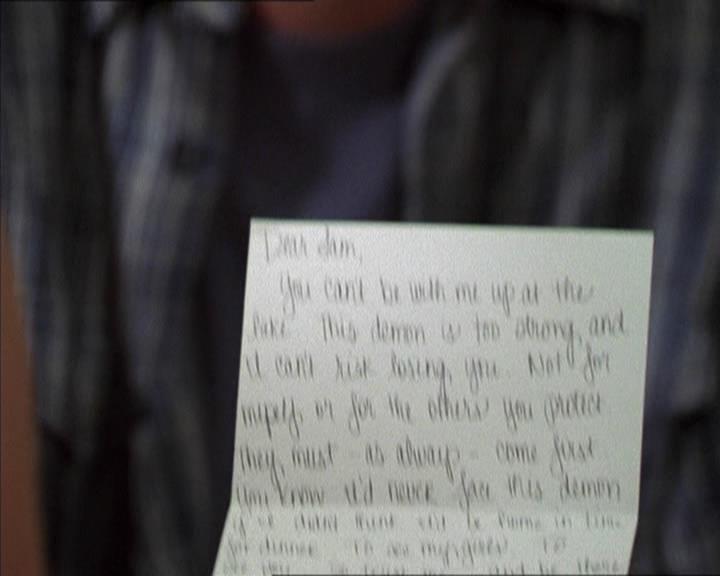 Dear Sam,
You can't be with me up at the
lake. This demon is too strong, and
I can't risk losing you. Not for
myself, or for the others you protect.
They must - as always - come first.
You know I'd never face this demon
if I didn't think I'd be home in time
for dinner. To see